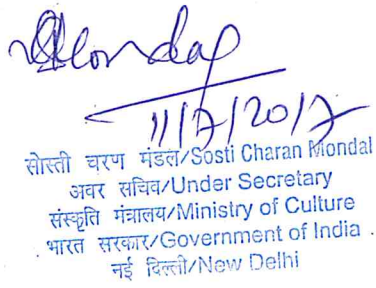 SMondal
11/7/2017
सोस्ती चरण मंडल/Sosti Charan Mondal
अवर सचिव/Under Secretary
संस्कृति मंत्रालय/Ministry of Culture
भारत सरकार/Government of India
नई दिल्ली/New Delhi